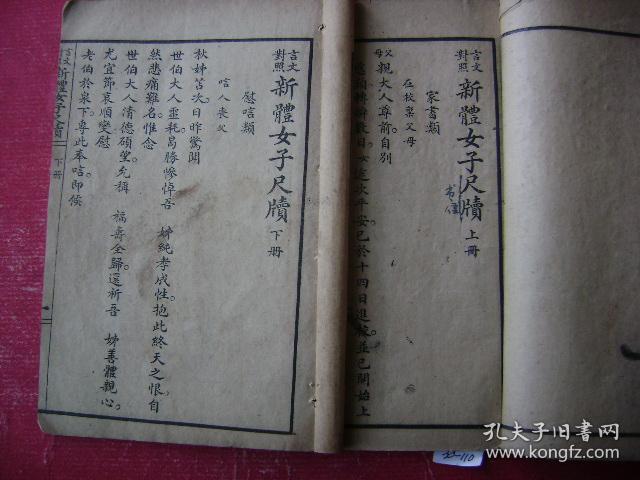 言文對照 新體女子尺牘 上冊
書信
家書類
在校稟父母
父母親大人尊前自別
數日女途次平安已於十四日進校並已開始上
言文對照 新體女子尺牘 下冊
慰唁類
唁人喪父
秋姊苫次日昨驚聞
世伯大人靈耗曷勝慘悼吾 姊純孝成性。抱此終天之恨。自
然悲痛難名。惟念
世伯大人清德碩望允稱 福壽全歸。還祈吾 姊善體親心。
尤宜節哀順變慰
老伯於泉下。專此奉唁即候
言文對照 新體女子尺牘 下冊
一
110
孔夫子旧书网
www.kongfz.com